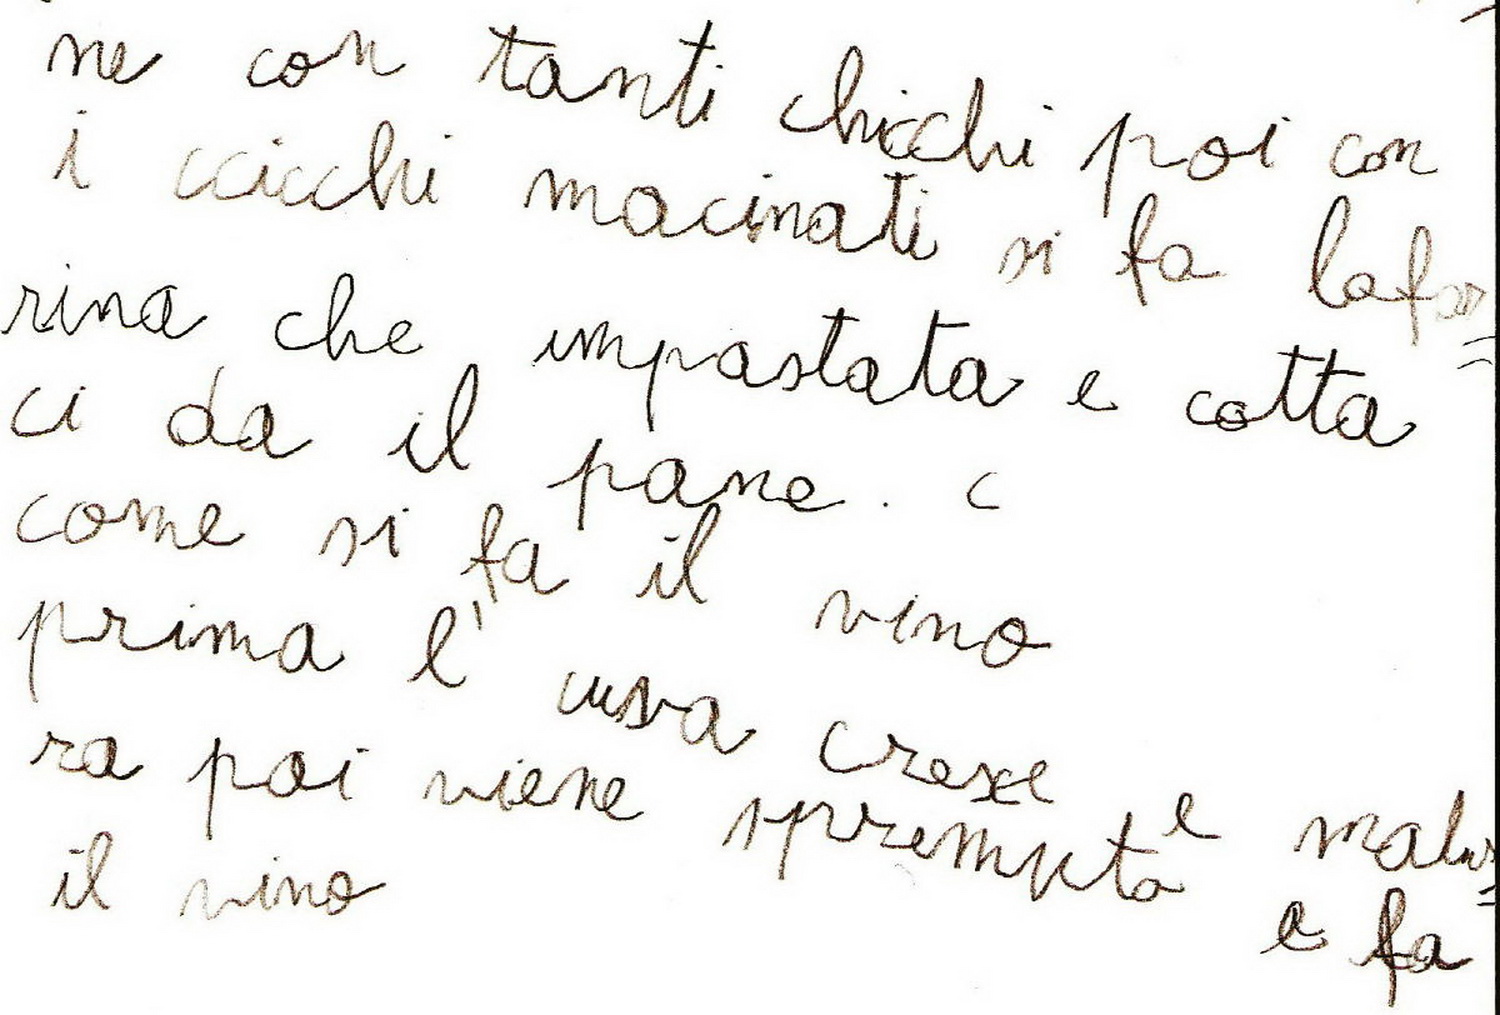 ne con tanti chicchi poi con
i ccicchi macinati si fa lafa
rina che impastata e cotta =
ci da il pane. c
come si fa il vino
prima l' uva cresce e matu
ra poi viene spremuta e fa =
il vino